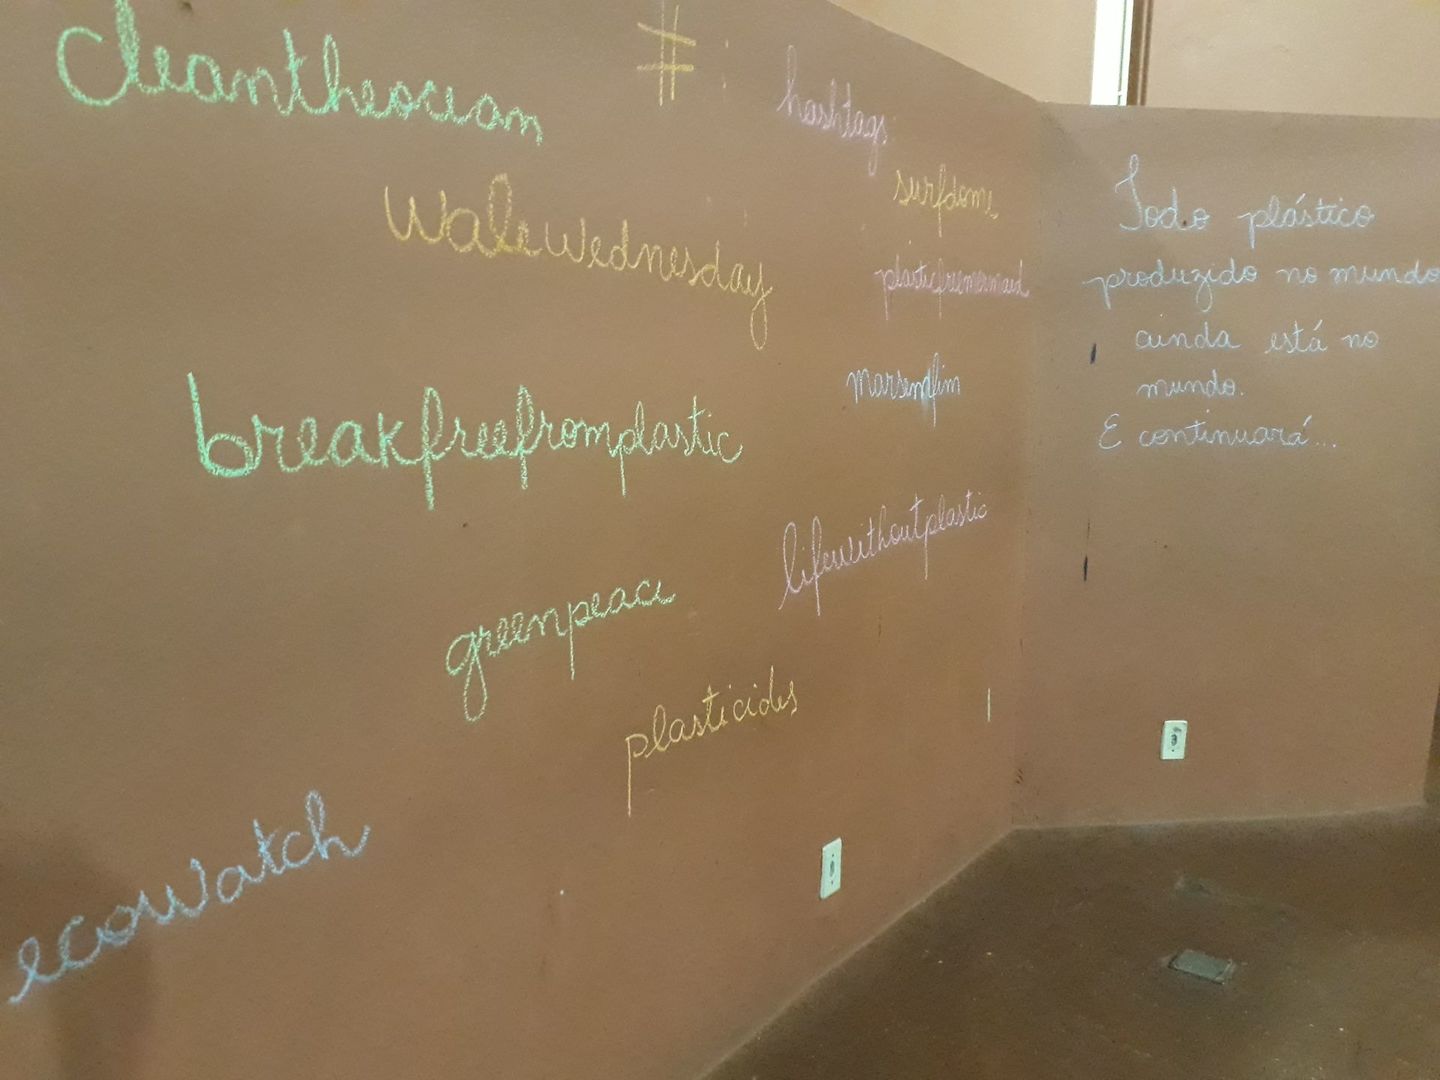 cleantheocean
#
hashtags
surfdome
walewednesday
plasticfreemermaid
marsemfim
breakfreefromplastic
lifewithoutplastic
greenpeace
plasticides
ecowatch
Todo plástico
produzido no mundo
ainda está no
mundo.
E continuará...